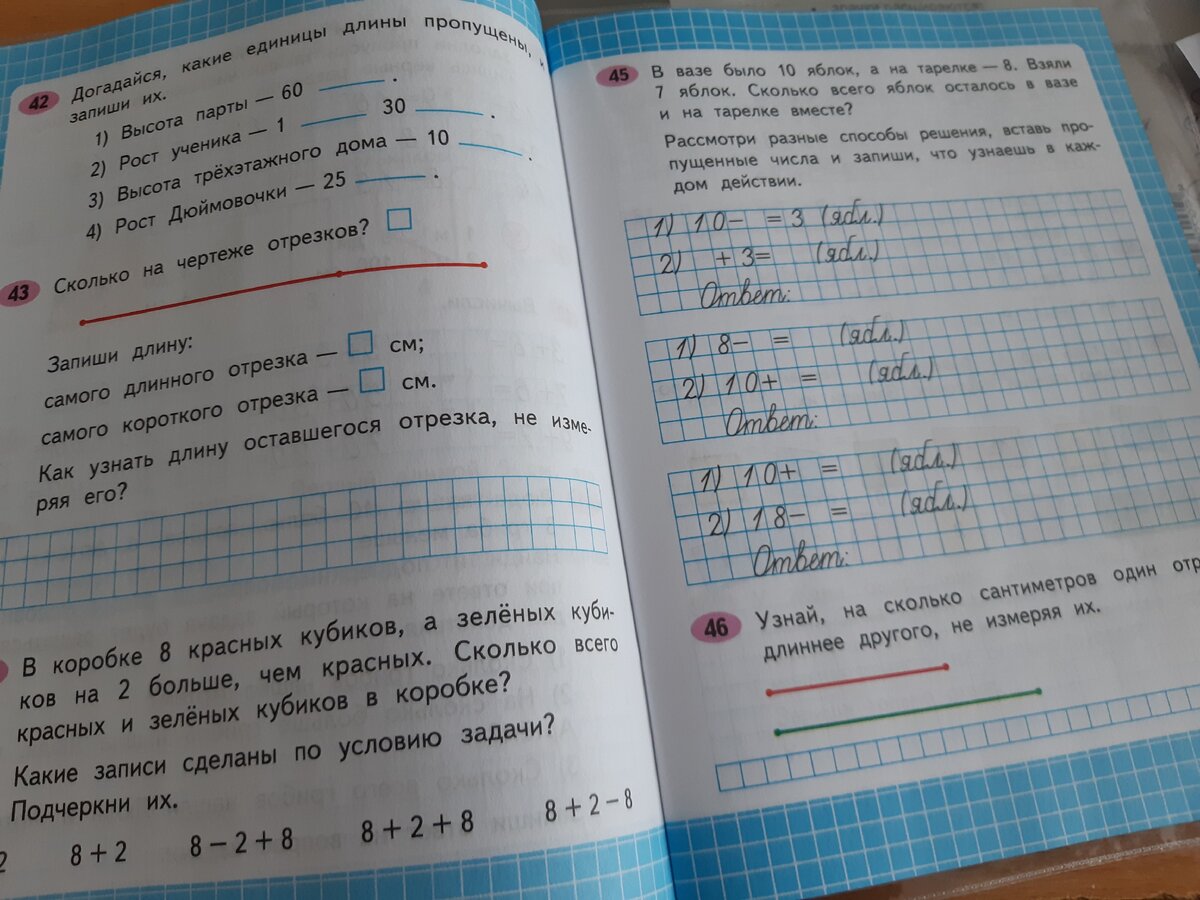 42 Догадайся, какие единицы длины пропущены, и
запиши их.
1) Высота парты — 60 ____ .
2) Рост ученика — 1 ____ 30 ____ .
3) Высота трёхэтажного дома — 10 ____ .
4) Рост Дюймовочки — 25 ____ .
43 Сколько на чертеже отрезков?
Запиши длину:
самого длинного отрезка — см;
самого короткого отрезка — см.
Как узнать длину оставшегося отрезка, не изме-
ряя его?
В коробке 8 красных кубиков, а зелёных куби-
ков на 2 больше, чем красных. Сколько всего
красных и зелёных кубиков в коробке?
Какие записи сделаны по условию задачи?
Подчеркни их.
2 8 + 2 8 − 2 + 8 8 + 2 + 8 8 + 2 − 8
45 В вазе было 10 яблок, а на тарелке — 8. Взяли
7 яблок. Сколько всего яблок осталось в вазе
и на тарелке вместе?
Рассмотри разные способы решения, вставь про-
пущенные числа и запиши, что узнаешь в каж-
дом действии.
1) 10− = 3 (ябл.)
2) + 3= (ябл.)
Ответ:
1) 8− = (ябл.)
2) 10+ = (ябл.)
Ответ:
1) 10+ = (ябл.)
2) 18− = (ябл.)
Ответ:
46 Узнай, на сколько сантиметров один отр
длиннее другого, не измеряя их.